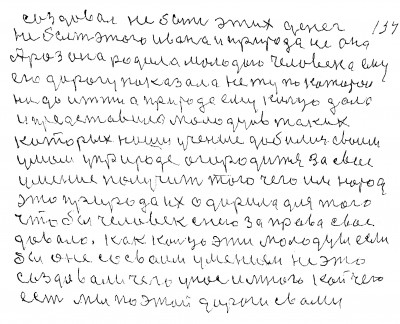 создовал не были этих денег 134
не был этого ивана и природа не она
А раз она родила молодого человека ему
его дорогу показала не ту по которой
надо итти а природа ему кицо дала
и представила молодцов таких
которых наши учение добились своим
умом у природе огородится за свое
умение получит того чего им народ
это природа их одарила для того
чтобы человек с нею за права свое
довало. Как кольцо эти молодцы если
бы оне со своим умением не это
создовали чего у нас и много кой чего
есть мы по этой дороги с вами